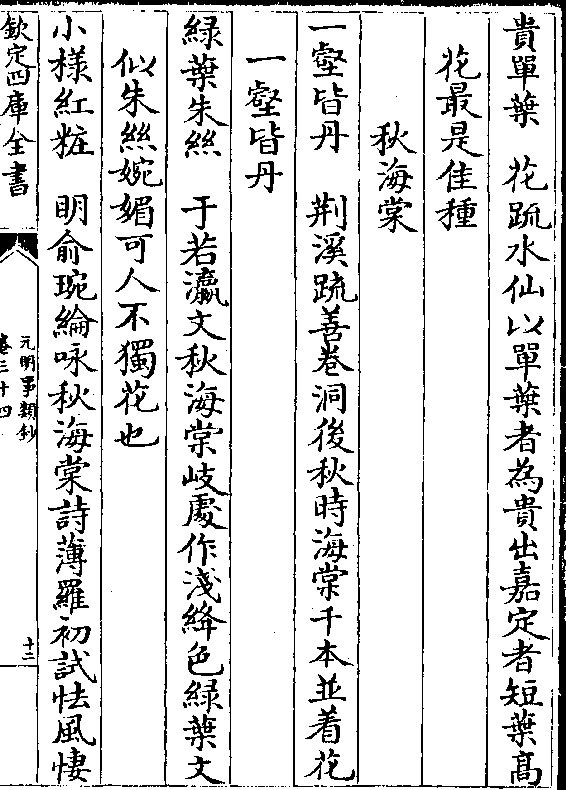 貴單葉　花疏水仙以單葉者為貴出嘉定者短葉高
花最是佳種
秋海棠
一壑皆丹　荆溪疏善卷洞後秋時海棠千本並着花
一壑皆丹
緑葉朱絲　于若瀛文秋海棠岐處作淺絳色緑葉文
似朱絲婉媚可人不獨花也
小様紅粧　明俞琬綸咏秋海棠詩薄羅初試怯風悽
欽定四庫全書
元明事類鈔
卷三十四
十二